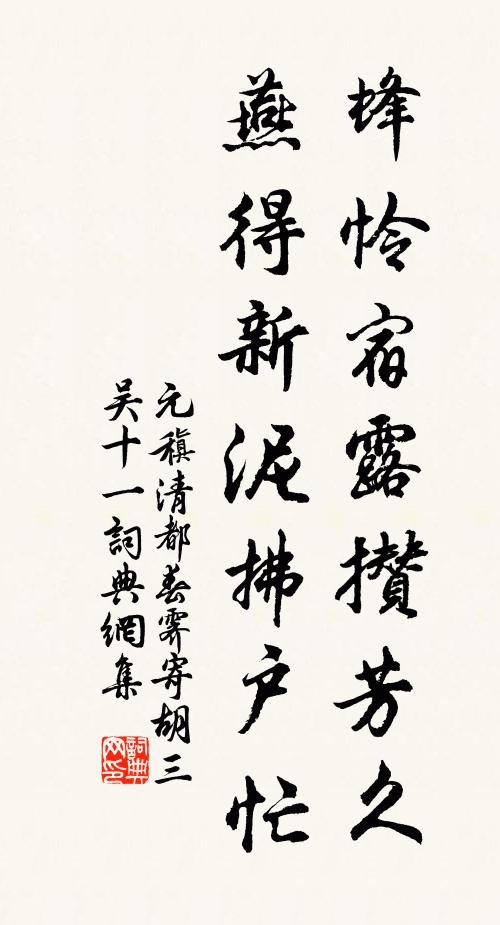 蜂怜宿露攢芳久
燕得新泥拂户忙
元稹清都春霽寄胡三
吴十一詞典網集
詞典网印